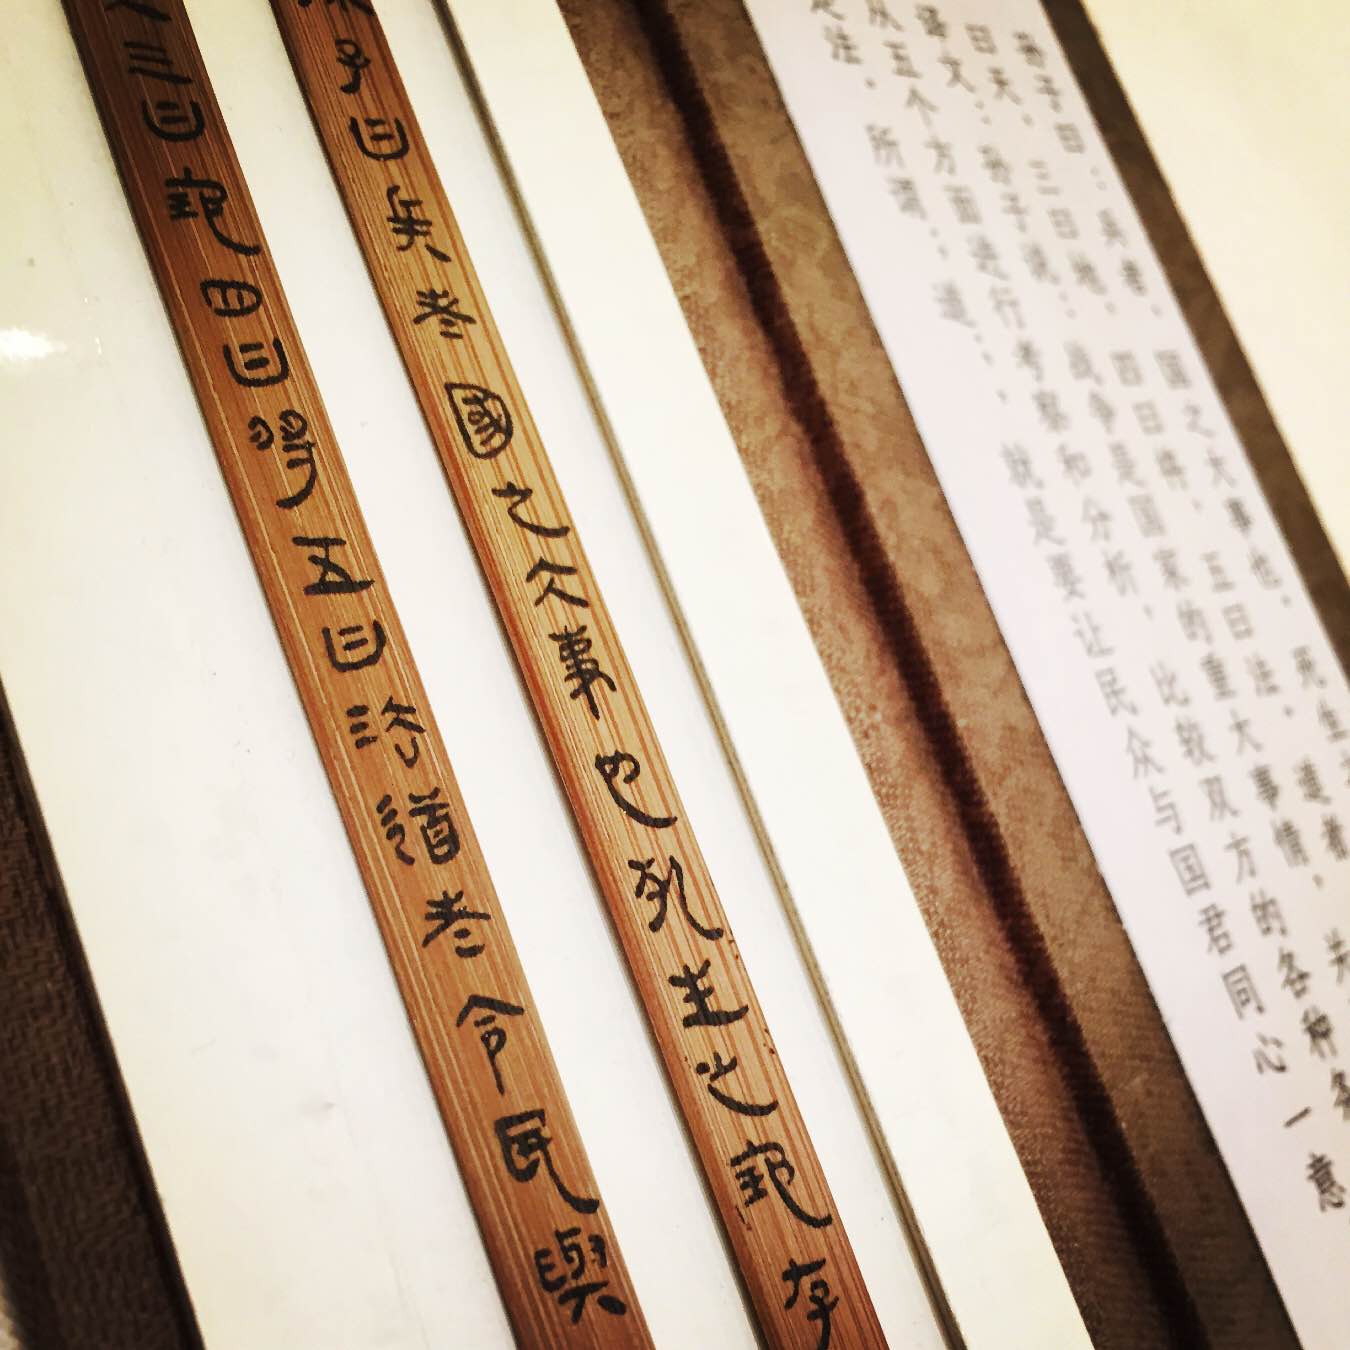 孙子曰：兵者，国之大事也，死生
曰天，三曰地，四曰将，五曰法。道者，
译文：孙子说：战争是国家的重大事情，关
从五个方面进行考察和分析，比较双方的各种条
法。所谓“道”，就是要让民众与国君同心一意
子曰兵者國之大事也死生之地存
三曰地四曰將五曰法道者令民與